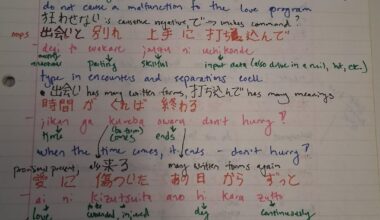 do not cause a malfunction to the love program
狂わせない is causative negative, で → makes command?
出会いと 別れ 上手に 打ち込んで
deai to wakare jouzu ni uchikonde
parting skilful input data (also drive in a nail, hit, etc.)
type in encounters and separations well
出会い has many written forms, 打ち込んで has many meanings
時間が くれば 終わる
jikan ga kureba owaru don't hurry?
time comes ends
when the time comes, it ends - don't hurry?
来る many written forms again
愛に 傷ついた あの日から ずっと
ai ni kizutsuita ano hi kara zutto
love injured day continuously